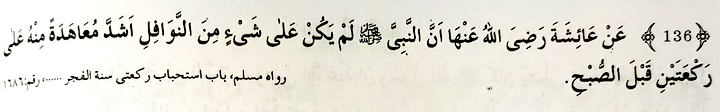 ﴿ 136 ﴾ عَنْ عَائِشَةَ رَضِیَ اللهُ عَنْهَا اَنَّ النَّبِیَّ ﷺ لَمْ یَکُنْ عَلٰی شَیْءٍ مِنَ النَّوَافِلِ اَشَدَّ مُعَاهَدَةً مِنْهُ عَلٰی
رَکْعَتَیْنِ قَبْلَ الصُّبْحِ. رواه مسلم، باب استحباب رکعتی سنة الفجر ......، رقم: ١٦٨٦